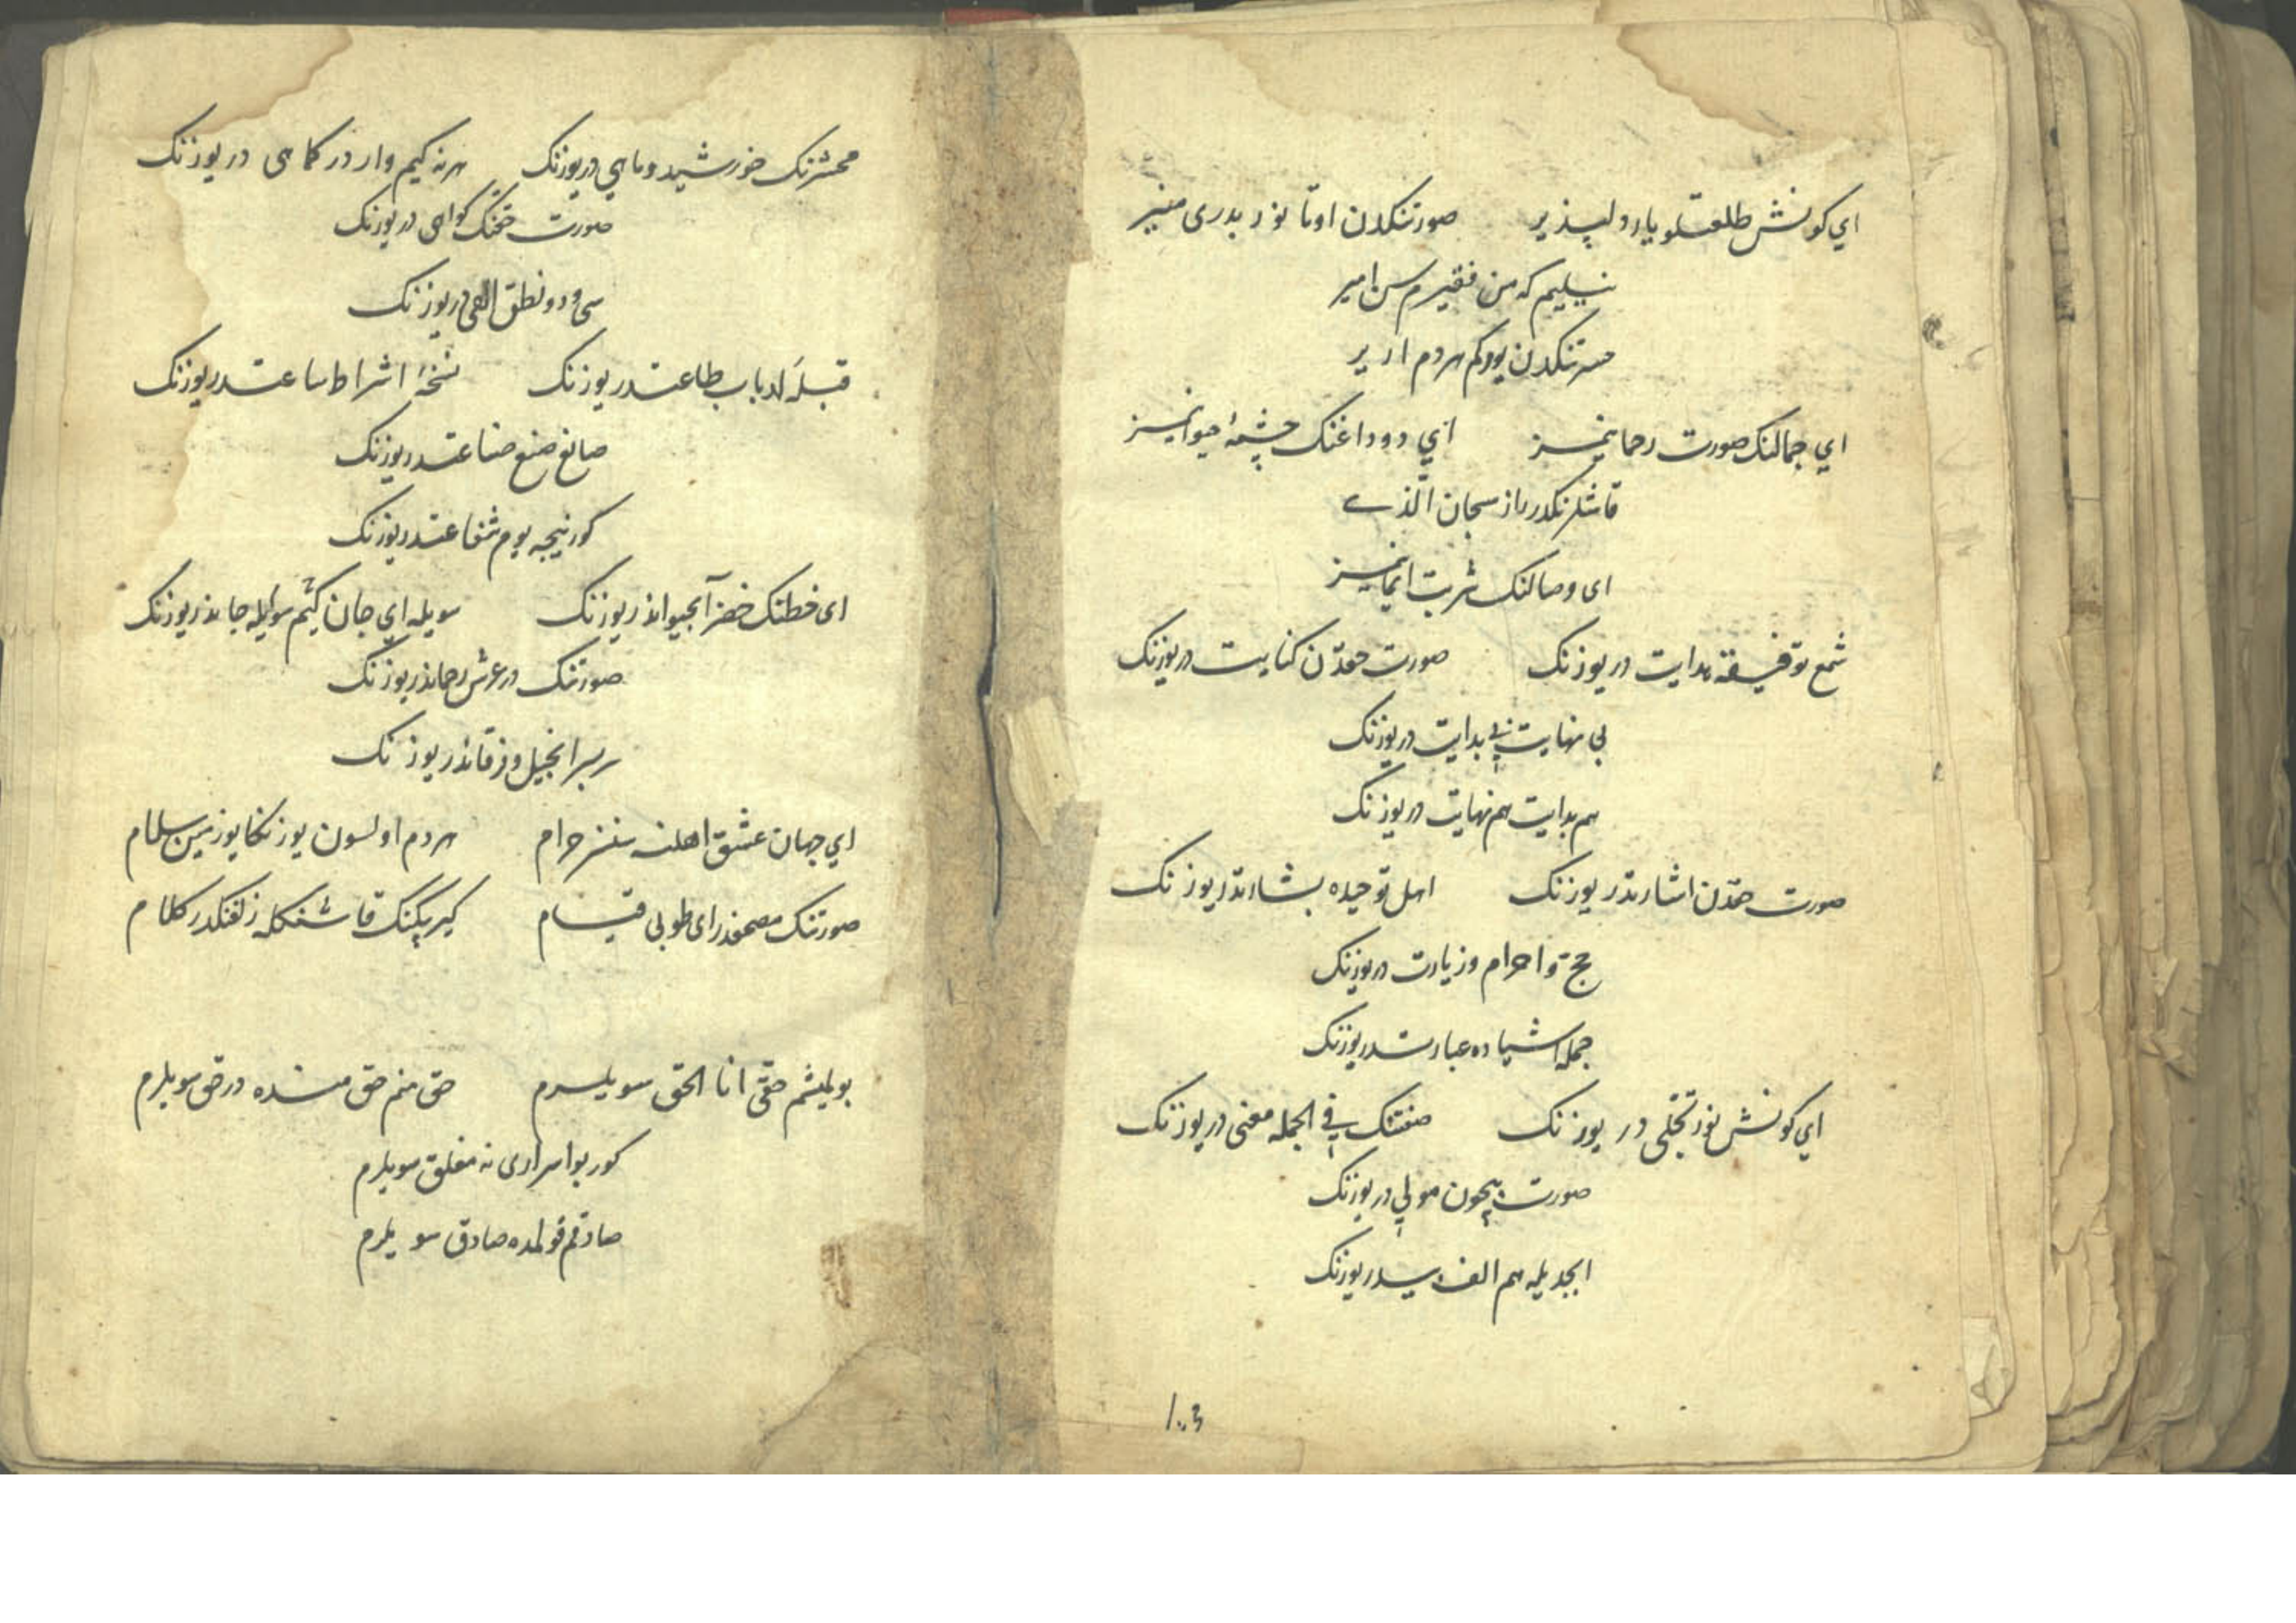 اي كونش طلعتلو يار دلپذير صورتنكدن اوتانور بدرى منير
نيليم كه من فقيرم سن امير
حسرتنكدن يوركم هردم ارير
اي جمالنك صورت رحمانيمز اي دوداغنك چشمهٔ حيوانيمز
قاشلرنكدر راز سبحان الّذي
اى وصالنك شربت ايمانيمز
شمع توفيقه هدايت در يوزنك صورت حقدن كنايت در يوزنك
بى نهايت بى بدايت در يوزنك
هم بدايت هم نهايت در يوزنك
صورت حقدن اشارتدر يوزنك اهل توحيده بشارتدر يوزنك
حج و احرام و زيارت در يوزنك
جمله اشياده عبارتدر يوزنك
اي كونش نور تجلّى در يوزنك صفتنك في الجمله معنى در يوزنك
صورت بيچون مولي در يوزنك
ابجديله هم الف بيدر يوزنك
1003
محشرنك خورشيد و ماهي در يوزنك هر نه كيم وار در كماهى در يوزنك
صورت حقنك كواهى در يوزنك
سى و دو نطق الهى در يوزنك
قبلهٔ ارباب طاعتدر يوزنك نسخهٔ اشراط ساعتدر يوزنك
صانع صنع صناعتدر يوزنك
كورنيجه يوم شفاعتدر يوزنك
اى خطنك خضر آبحيواندر يوزنك سويله اي جان كيم سوايله جاندر يوزنك
صورتنك در عرش رحماندر يوزنك
سربسر انجيل و فرقاندر يوزنك
اي جهان عشق اهلنه سنسز حرام هردم اولسون يوزنكا يوز مين سلام
صورتنك مصحفدر اى طوبى قيام كيرپيكنك قاشنكله زلفنكدر كلام
بولمشم حقّى انا الحق سويلرم حق منم حق مندہ در حق سويلرم
كور بو اسرارى نه مغلق سويلرم
صادقم قولمده صادق سويلرم